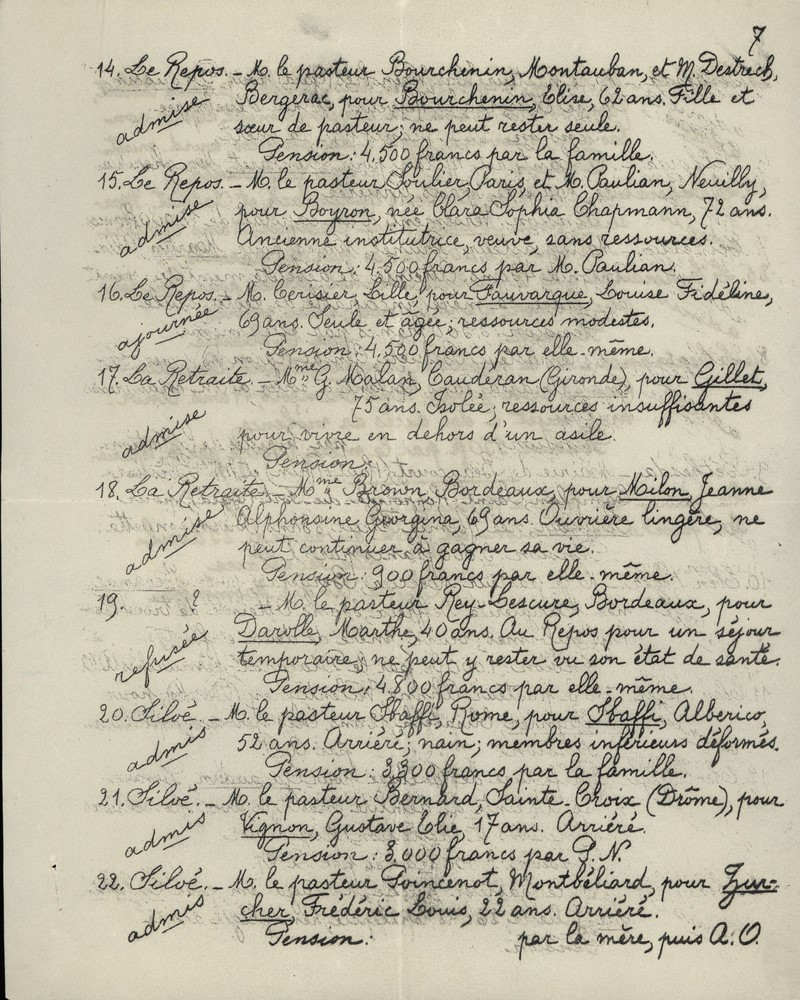 7
14. Le Repos. – M. le pasteur Bourchenin, Montauban, et M. Destrech,
admise
Bergerac, pour Bourchenin, Elise, 62 ans. Fille et
sœur de pasteur; ne peut rester seule.
Pension: 4.500 francs par la famille.
15. Le Repos. – M. le pasteur Soulier, Paris, et M. Paulian, Neuilly,
admise
pour Boyron, née Clara Sophia Chapmann, 72 ans.
Ancienne institutrice, veuve, sans ressources.
Pension: 4.500 francs par M. Paulian.
16. Le Repos. – M. Cerisier, Lille, pour Fauvarque, Louise Fidéline,
ajournée
69 ans. Seule et âgée; ressources modestes.
Pension: 4.500 francs par elle-même.
17. La Retraite. – Mme G. Malan, Caudéran (Gironde), pour Gillet,
75 ans. Isolée; ressources insuffisantes
admise
pour vivre en dehors d'un asile.
Pension:
18. La Retraite. – Mme Brown, Bordeaux, pour Milon, Jeanne
admise
Alphonsine Georgina, 69 ans. Ouvrière lingère, ne
peut continuer à gagner sa vie.
Pension: 900 francs par elle-même.
19. ? – M. le pasteur Rey-Lescure, Bordeaux, pour
refusée
Darolle, Marthe, 40 ans. Au Repos pour un séjour
temporaire; ne peut y rester vu son état de santé.
Pension: 4.800 francs par elle-même.
20. Siloé. – M. le pasteur Sbaffi, Rome, pour Sbaffi, Alberico,
admis
52 ans. Arriéré; nain; membres inférieurs déformés.
Pension: 3.300 francs par la famille.
21. Siloé. – M. le pasteur Bernard, Sainte-Croix (Drôme), pour
admis
Vignon, Gustave Elie, 17 ans. Arriéré.
Pension: 3.000 francs par P. N.
22. Siloé. – M. le pasteur Poincenot, Montbéliard, pour Zur-
admis
cher, Frédéric Louis, 22 ans. Arriéré.
Pension: par la mère, puis A. O.